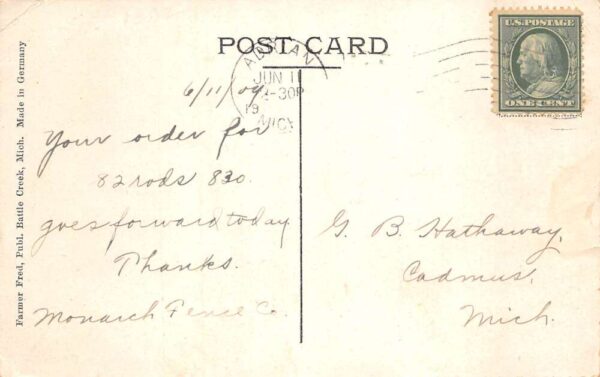 POST CARD
U.S. POSTAGE
ONE CENT
ADRIAN
JUN 11
-30P
19
MICH
6/11/09
Your order for
82 rods 830.
goes forward today
Thanks.
Monarch Fence Co.
G. B. Hathaway,
Cadmus,
Mich.
Farmer Fred, Publ. Battle Creek, Mich. Made in Germany